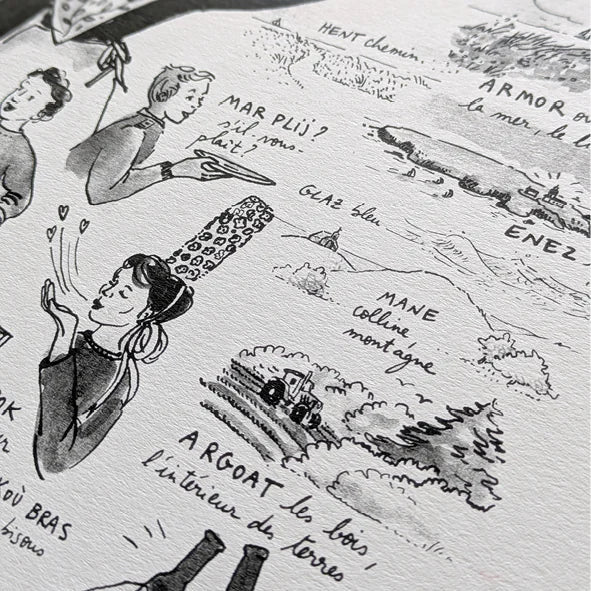 HENT chemin
ARMOR ou
la mer, le
MAR PLIJ ?
s'il vous
plaît !
GLAZ bleu
ENEZ
MANE
colline,
montagne
ARGOAT les bois,
l'intérieur des terres
OK
KOÙ BRAS
bisous